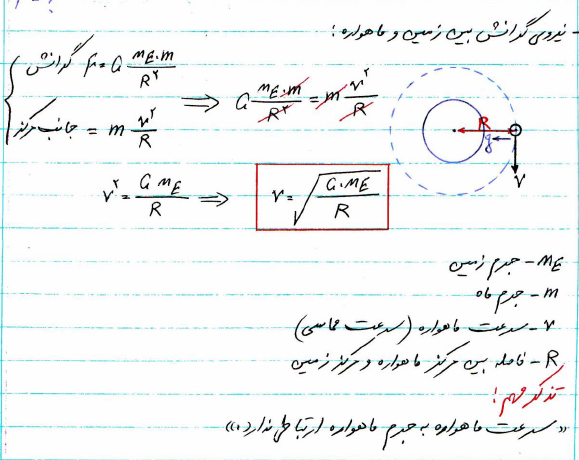 - نیروی گرانش بین زمین و ماهواره:
گرانش F = G \frac{m_E \cdot m}{R^۲}
جانب مرکز = m \frac{v^۲}{R}
⇒ G \frac{m_E \cdot m}{R^۲} = m \frac{v^۲}{R}
R
g
v
v^۲ = \frac{G m_E}{R} ⇒ v = \sqrt{\frac{G \cdot m_E}{R}}
m_E - جرم زمین
m - جرم ماه
v - سرعت ماهواره (سرعت مماسی)
R - فاصله بین مرکز ماهواره و مرکز زمین
تذکر مهم!
«سرعت ماهواره به جرم ماهواره ارتباطی ندارد!»